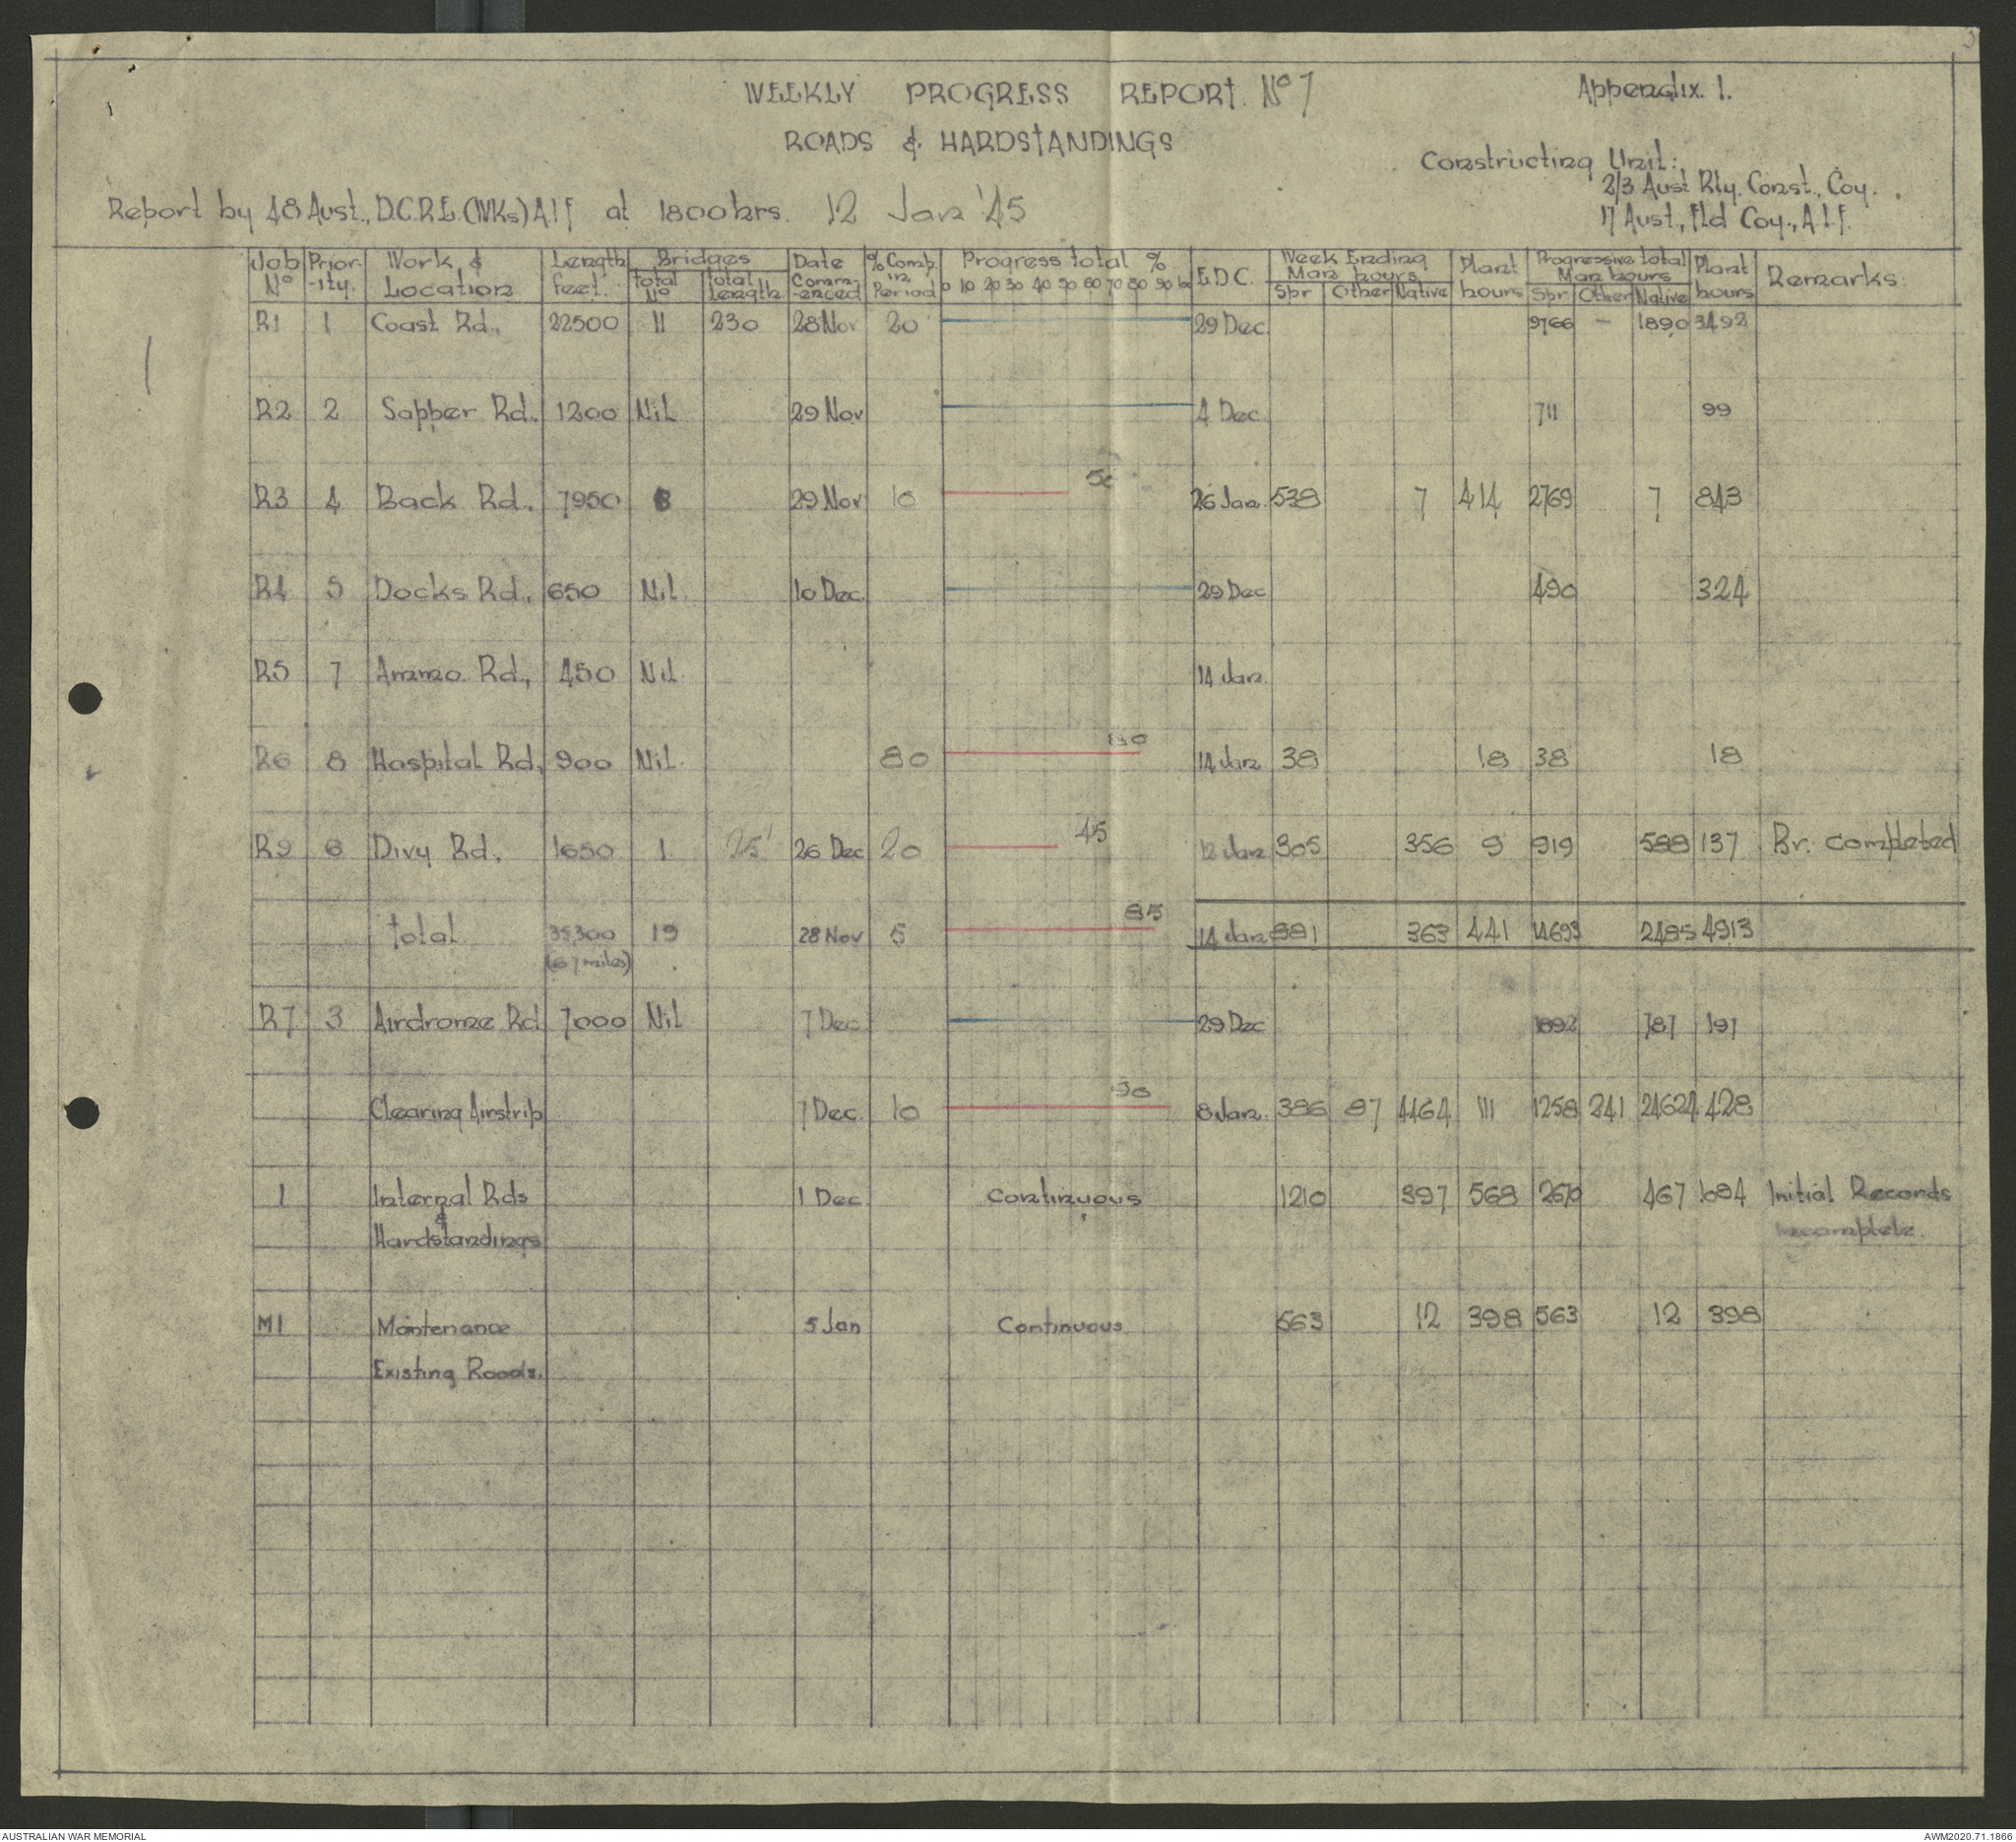 WEEKLY PROGRESS REPORT. Nº 7
Appendix. 1.
ROADS & HARDSTANDINGS
Constructing Unit:
2/3 Aust Rly. Const., Coy.
17 Aust., Fld Coy., A.I.F.
Report by 48 Aust., D.C.R.E. (WKs) A.I.F at 1800 hrs. 12 Jan '45
Job Nº Prior-ity. Work & Location Length feet. Bridges Total Nº Total Length Date Comm-enced % Comp. in Period Progress total % 0 10 20 30 40 50 60 70 80 90 100 E.D.C. Week Ending Man hours Spr Other Native Plant hours Progressive total Man hours Spr Other Native Plant hours Remarks.
R1 1 Coast Rd., 22500 11 230 28 Nov 20 29 Dec. 9766 - 1890 3492
R2 2 Sapper Rd. 1200 Nil 29 Nov 4 Dec 711 99
R3 4 Back Rd. 7950 29 Nov 10 50 26 Jan. 538 7 414 2769 7 843
R4 5 Docks Rd., 650 Nil. 10 Dec. 29 Dec 490 324
R5 7 Ammo Rd., 450 Nil. 14 Jan.
R6 8 Hospital Rd, 900 Nil. 80 80 14 Jan 38 18 38 18
R9 6 Divy Rd, 1650 1 25' 26 Dec 20 45 12 Jan 305 356 9 919 588 137 Br. Completed
Total 35300 13 28 Nov 5 85 14 Jan 881 363 441 14693 2485 4913
(6.7 miles)
R7 3 Airdrome Rd 7000 Nil 7 Dec 29 Dec 1892 787 197
Clearing Airstrip 7 Dec. 10 90 8 Jan. 386 87 4464 111 1258 241 24624 428
1 Internal Rds 1 Dec. Continuous 1210 397 568 2670 467 1084 Initial Records
& Hardstandings incomplete.
M1 Maintenance 5 Jan Continuous 563 12 398 563 12 398
Existing Roads.
AUSTRALIAN WAR MEMORIAL
AWM2020.71.1866